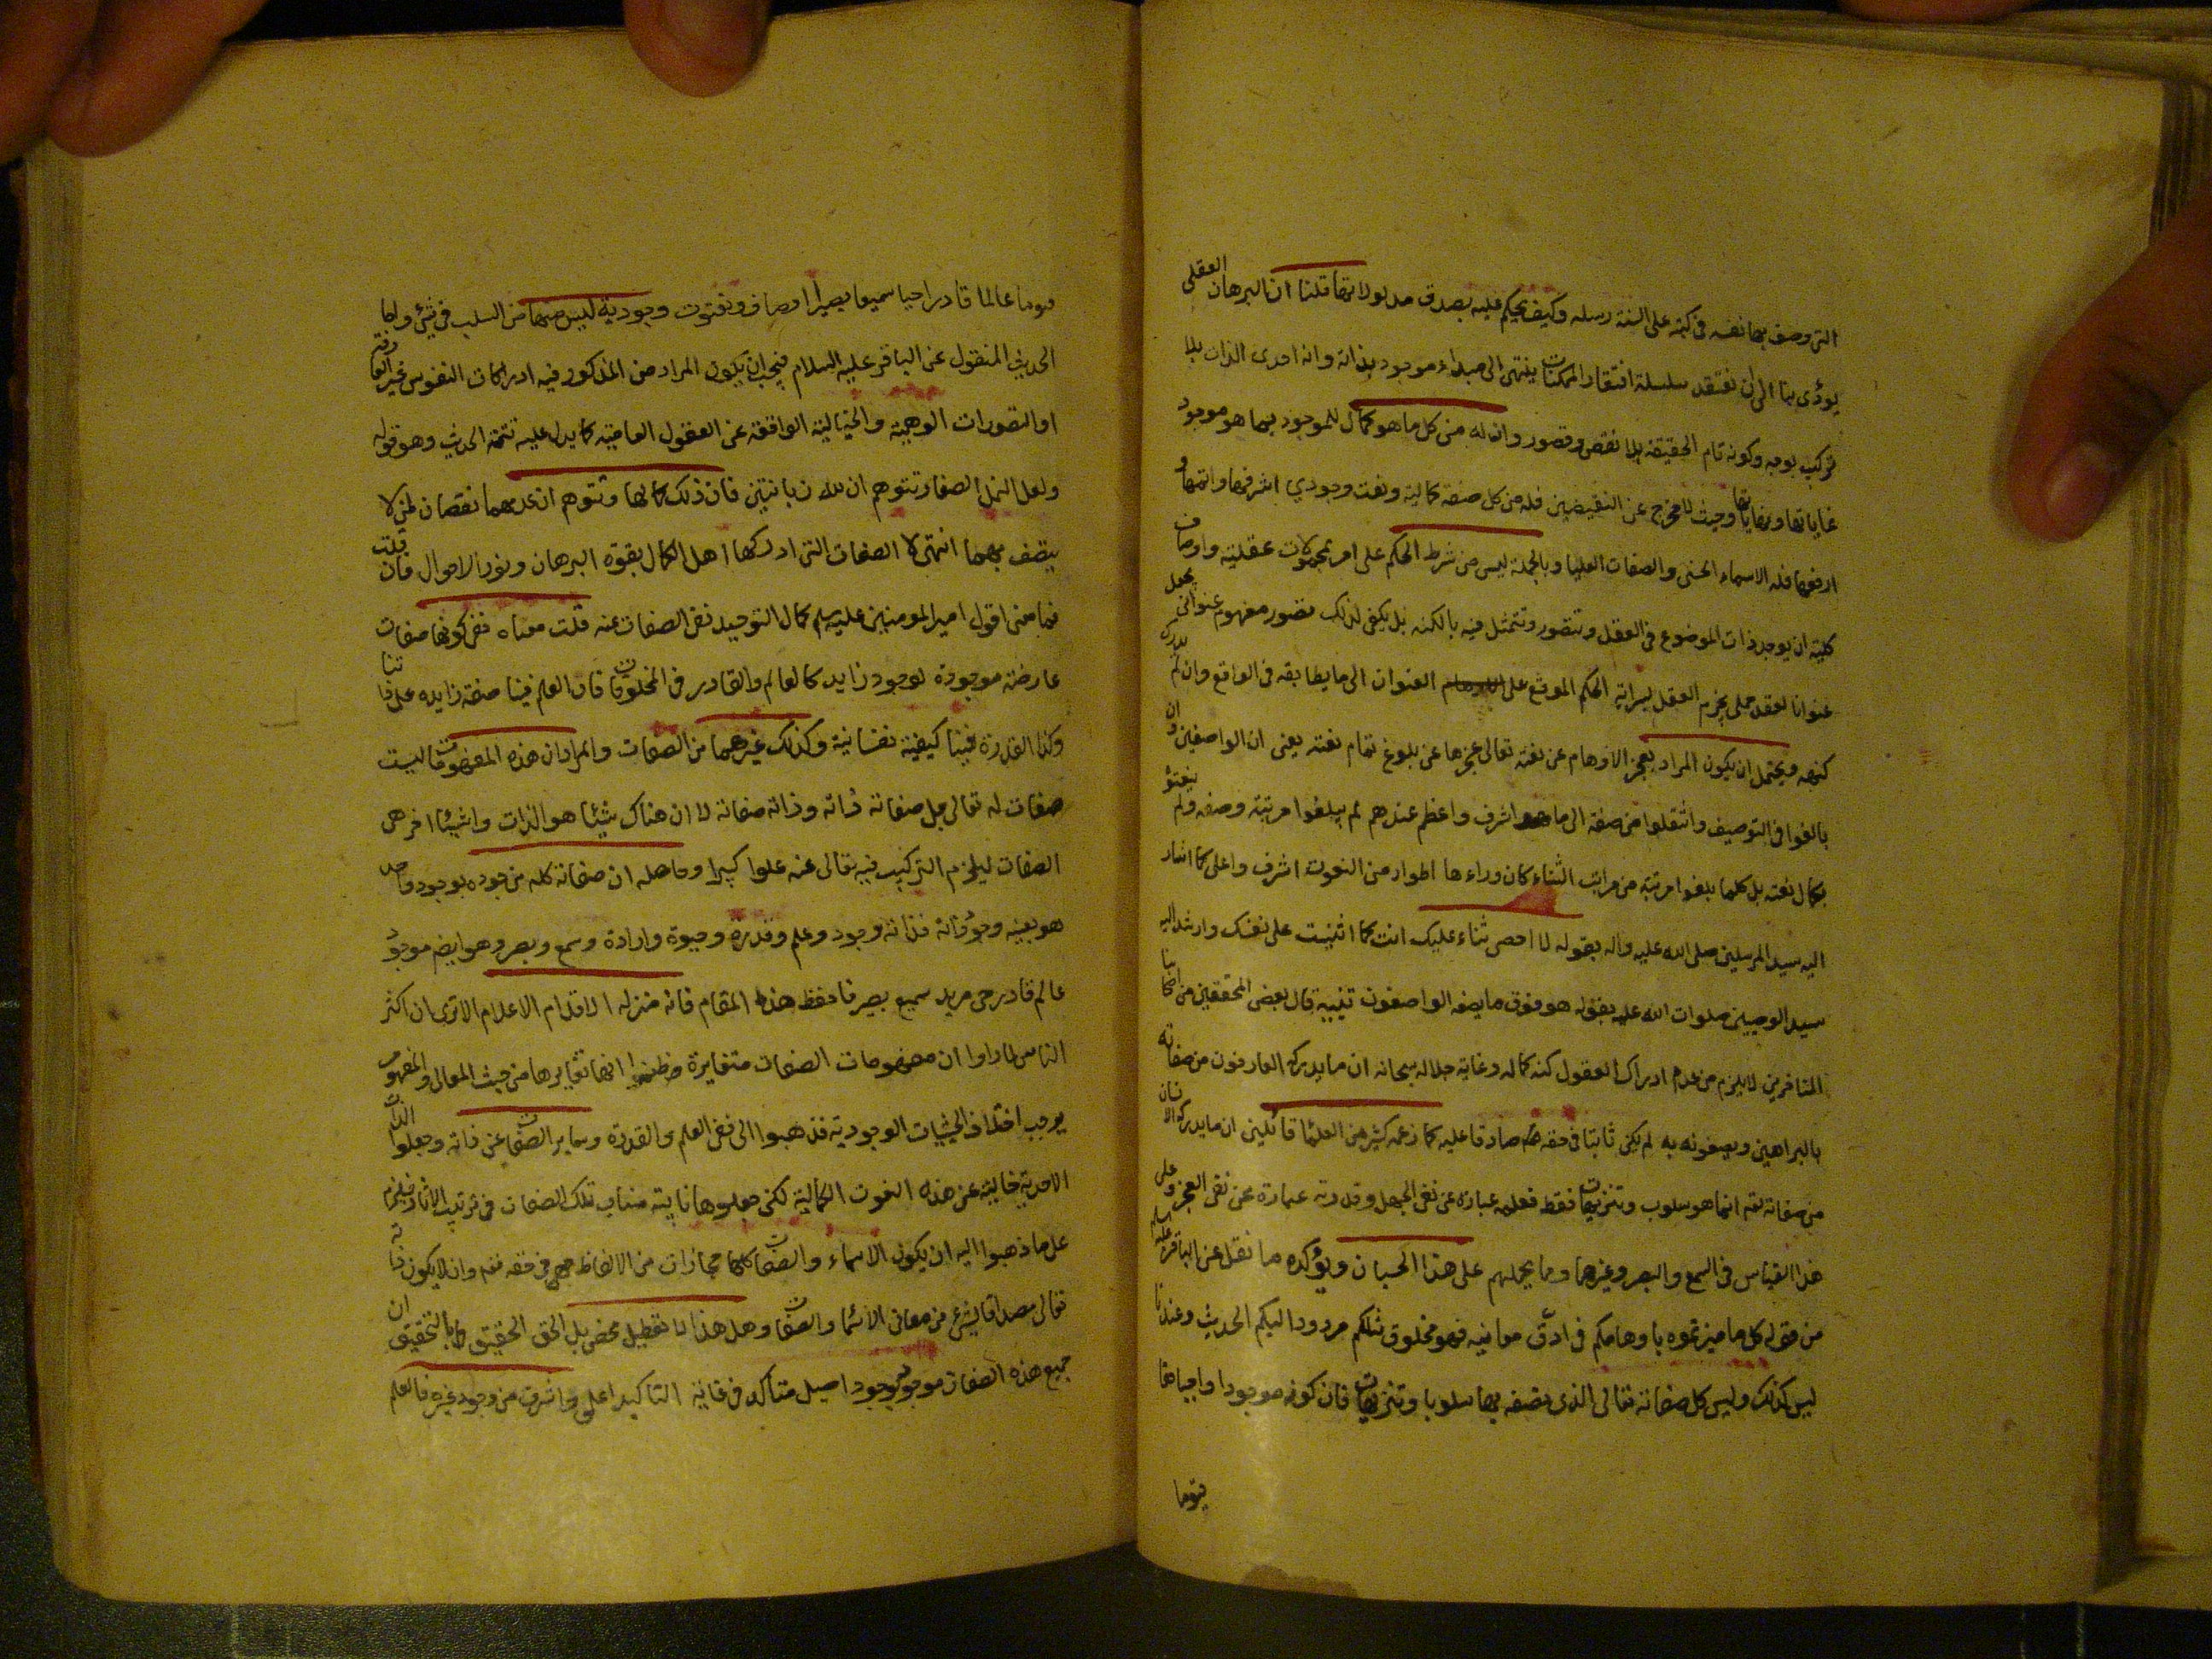 التى وصف بها نفسه فى كتبه على السنة رسله وكيف يحكم عليه بصدق مدلولاتها قلنا ان البرهان العقلى
يودى بنا الى ان نعتقد سلسلة افتقار الممكنات ينتهى الى مبداء موجود بذاته وانه احدى الذات بلا
تركيب بوجه وكونه تام الحقيقة بلا نقص وقصور وان له من كل ما هو كمال للموجود بما هو موجود
غاياتها ونهاياتها وحيث لا مخرج عن النقيضين فله من كل صفة كمالية ونعت وجودي اشرفها واتمها و
ارفعها فله الاسماء الحسنى والصفات العليا وبالجملة ليس من شرط الحكم على امر بمحمولات عقلية واوصاف
كلية ان يوجد ذات الموضوع فى العقل ويتصور ويتمثل فيه بالكنه بل يكفى لذلك تصور مفهوم عنوانى يجعل
عنوانا لعقد حملى يجزم العقل بسراية الحكم الموقع على العنوان الى ما يطابقه فى الواقع وان لم يدرك
كنهه ويحتمل ان يكون المراد بعجز الاوهام عن نعته تعالى عجزها عن بلوغ تمام نعته يعنى ان الواصفين وان
بالغوا فى التوصيف وانتقلوا من صفة الى ما هو اشرف واعظم عندهم لم يبلغوا مرتبة وصفه ولم ينعتوْ
بكمال نعته بل كلما بلغوا مرتبة من مراتب الثناء كان وراءها اطوار من النعوت اشرف واعلى كما اشار
اليه سيد المرسلين صلى الله عليه واله بقوله لا احصى ثناء عليك انت كما اثنيت على نفسك وارشد اليه
سيد الوصيين صلوات الله عليه بقوله هو فوق ما يصفه الواصفون تنبيه قال بعض المحققين من اصحابنا
المتاخرين لا يلزم من عدم ادراك العقول كنه كماله وغاية جلاله سبحانه ان ما يدركه العارفون من صفاته
بالبراهين ويصفونه به لم يكن ثابتا فى حقه صادقا عليه كما زعمه كثير من العلما قائلين ان ما يدركه الانسان
من صفاته تعه انما هو سلوب وتنزيهات فقط فعلمه عبارة عن نفى الجهل وقدرته عبارة عن نفى العجز وعلى
هذا القياس فى السمع والبصر وغيرهما ومما يحملهم على هذا الحسبان ويؤكده ما نقل عن الباقر عليه السلم
من قوله كل ما ميزتموه باوهامكم فى ادق معانيه فهو مخلوق مثلكم مردود اليكم الحديث وعندنا
ليس كذلك وليس كل صفاته تعالى الذى نصفه بها سلوبا وتنزيهات فان كونه موجودا واجبا قا
يوما
يوما عالما قادرا حيا سميعا بصيرا اوصاف ونعوت وجودية ليس منها من السلب فى شئ واما
الحديث المنقول عن الباقر عليه السلام فيجب ان يكون المراد من المذكور فيه ادراكات النفوس غير العارفة
او التصورات الوهمية والخيالية الواقفة عن العقول العامية كما يدل عليه تتمة الحديث وهو قوله
ولعل النمل الصغار تتوهم ان لله زبانتين فان ذلك كمالها وتتوهم ان عدمهما نقصان لمن لا
يتصف بهما انتهى لا الصفات التى ادركها اهل الكمال بقوة البرهان ونور الاحوال فان قلت
فما معنى قول امير المومنين عليه سلم كمال التوحيد نفى الصفات عنه قلت معناه نفى كونها صفات
عارضة موجودة لوجود زايد كالعالم والقادر فى المخلوقات فان العلم فينا صفة زايدة على ذاتنا
وكذا القدرة فينا كيفية نفسانية وكذلك غيرهما من الصفات والمراد ان هذه المفهومات ليست
صفات له تعالى بل صفاته ذاته وذاته صفاته لا ان هناك شيئا هو الذات واشياء اخر هى
الصفات ليلزم التركيب فيه تعالى عنه علوا كبيرا وحاصله ان صفاته كله موجوده بوجود واحد
هو بعينه وجود ذاته فذاته وجود وعلم وقدرة وحيوة وارادة وسمع وبصر وهو ايضا موجود
عالم قادر حى مريد سميع بصير فاحفظ هذا المقام فانه منزلة الاقدام الاعلام الا ترى ان اكثر
الناس لما راوا ان مفهومات الصفات متغايرة فظنوا انها تغايرها من حيث المعانى والمفهوم
يوجب اختلاف الحيثيات الوجودية فذهبوا الى نفى العلم والقدرة وساير الصفات عن ذاته وجعلوا الذات
الاحدية خالية عن هذه النعوت الكمالية لكن جعلوها نايبة مناب تلك الصفات فى ترتيب الاثار فيلزم
على ما ذهبوا اليه ان يكون الاسماء والصفات كلها مجازات من الالفاظ فى حقه تعه وان لا يكون ذاته
تعالى مصداقا لشئ من معانى الاسما والصفات وهل هذا الا تعطيل محض بل الحق الحقيق بالتحقيق ان
جميع هذه الصفات موجود بوجود اصيل متأكد فى غاية التاكيد اعلى واشرف من وجود غيره فالعلم